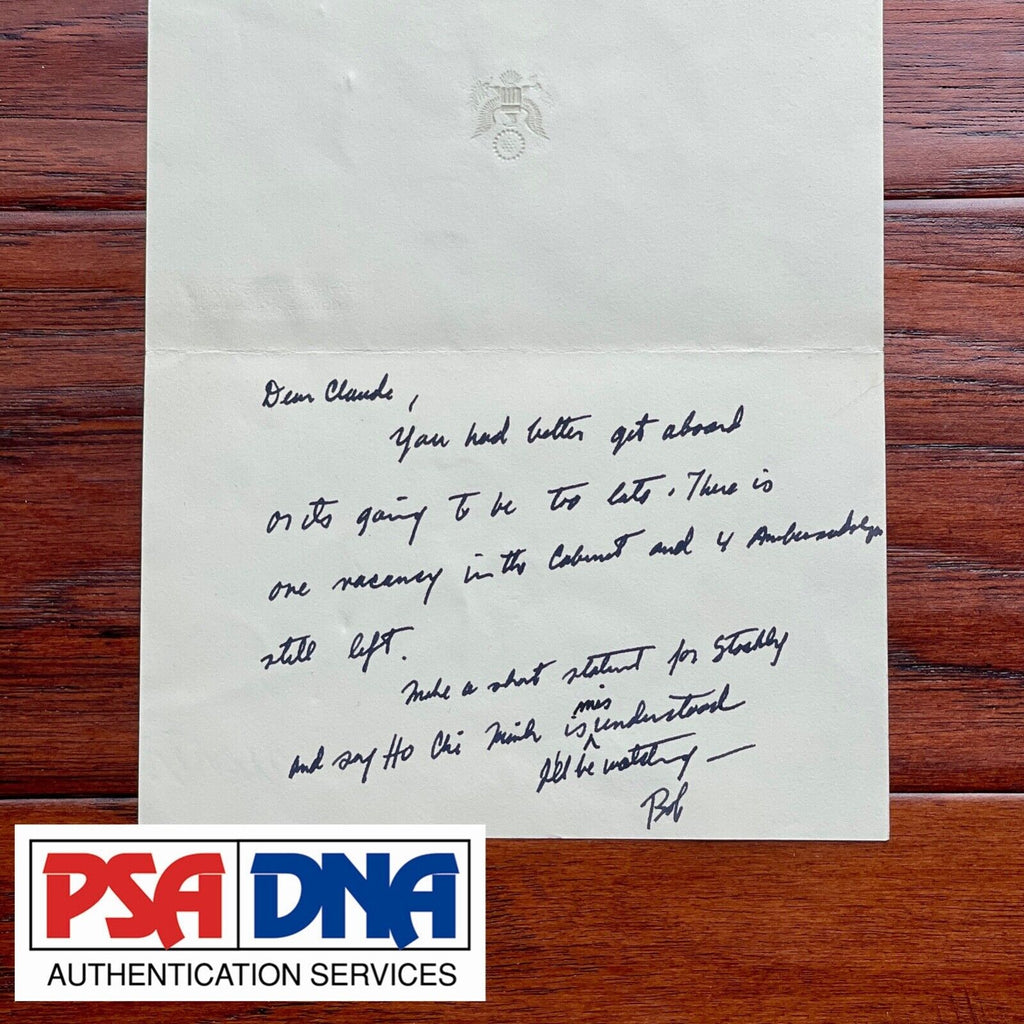 Dear Claude,
You had better get aboard
or its going to be too late. There is
one vacancy in the Cabinet and 4
still left.
Make a short statmt for Stokely
and say Ho Chi Minh is misunderstood
I'll be watching —
Bob
PSA DNA
AUTHENTICATION SERVICES